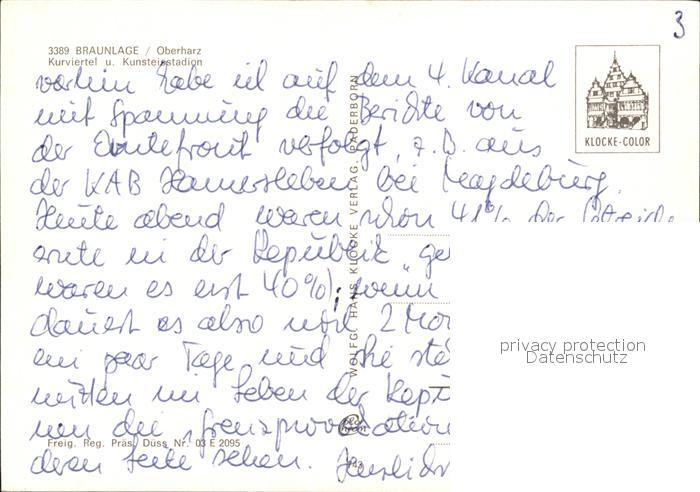 3
3389 BRAUNLAGE / Oberharz
Kurviertel u. Kunsteisstadion
vorhin habe ich auf dem 4. Kanal
mit Spannung die Berichte von
der Erntefront verfolgt, z.B. aus
der KAB Hamersleben bei Magdeburg.
Heute abend waren schon 41% der Getreide
ernte in der Republik „ge
waren es erst 40%); wenn
dauert es also noch 2 Mo
ein paar Tage und Sie ste
mitten im Leben der Repu
nun die
deren Seite sehen. Herzlich
KLOCKE-COLOR
WOLFG. HANS KLOCKE VERLAG, PADERBORN
Freig. Reg. Präs. Düss. Nr. 03 E 2095
privacy protection
Datenschutz